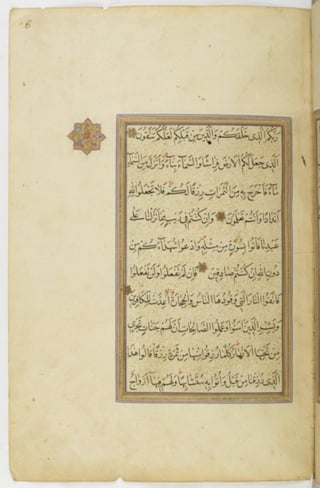 6
ربكم الذي خلقكم والذين من قبلكم لعلكم تتقون
الذي جعل لكم الارض فراشا والسماء بناء وانزل من السماء
ماء فاخرج به من الثمرات رزقا لكم فلا تجعلوا لله
اندادا وانتم تعلمون وان كنتم في ريب مما نزلنا على
عبدنا فاتوا بسورة من مثله وادعوا شهداءكم من
دون الله ان كنتم صادقين فان لم تفعلوا ولن تفعلوا
فاتقوا النار التي وقودها الناس والحجارة اعدت للكافرين
وبشر الذين امنوا وعملوا الصالحات ان لهم جنات تجري
من تحتها الانهار كلما رزقوا منها من ثمرة رزقا قالوا هذا
الذي رزقنا من قبل واتوا به متشابها ولهم فيها ازواج